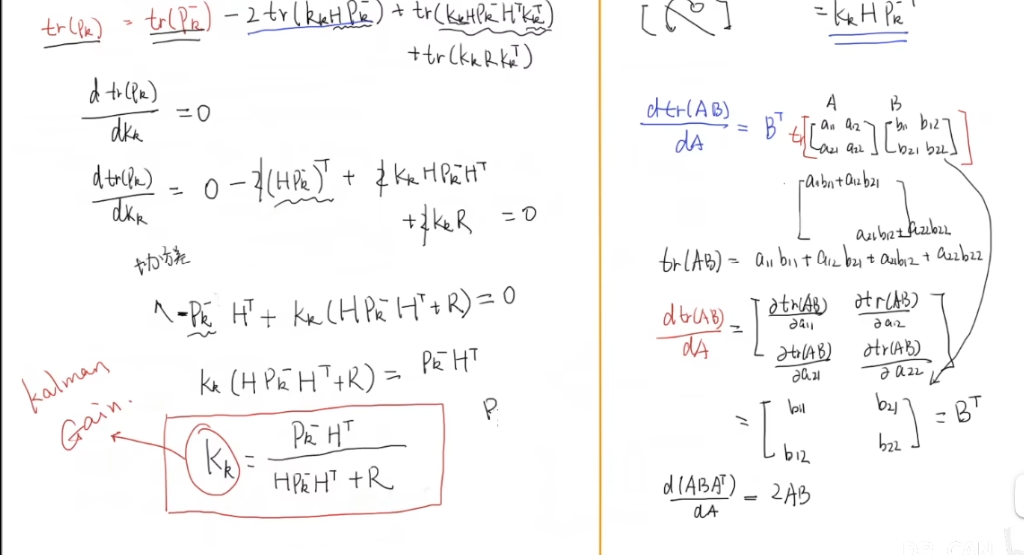 tr(Pk) = tr(Pk⁻) - 2tr(KkHPk⁻) + tr(KkHPk⁻HᵀKkᵀ)
+tr(KkRKkᵀ)
d tr(Pk)
dKk
=0
d tr(Pk)
dKk
= 0 - 2(HPk⁻)ᵀ + 2KkHPk⁻Hᵀ
+2KkR =0
-Pk⁻ Hᵀ + Kk(HPk⁻Hᵀ+R) = 0
Kk(HPk⁻Hᵀ+R) = Pk⁻Hᵀ
kalman
Gain.
Kk = Pk⁻Hᵀ
HPk⁻Hᵀ +R
P
= KkHPk⁻
A B
dtr(AB)
dA
= Bᵀ tr[[a11 a12
a21 a22][b11 b12
b21 b22]]
[a11b11+a12b21
a21b12+a22b22]
tr(AB) = a11b11 + a12b21 + a21b12 + a22b22
dtr(AB)
dA
= [∂tr(AB)
∂a11
∂tr(AB)
∂a12
∂tr(AB)
∂a21
∂tr(AB)
∂a22]
= [b11 b21
b12 b22] = Bᵀ
d(ABAᵀ)
dA
= 2AB